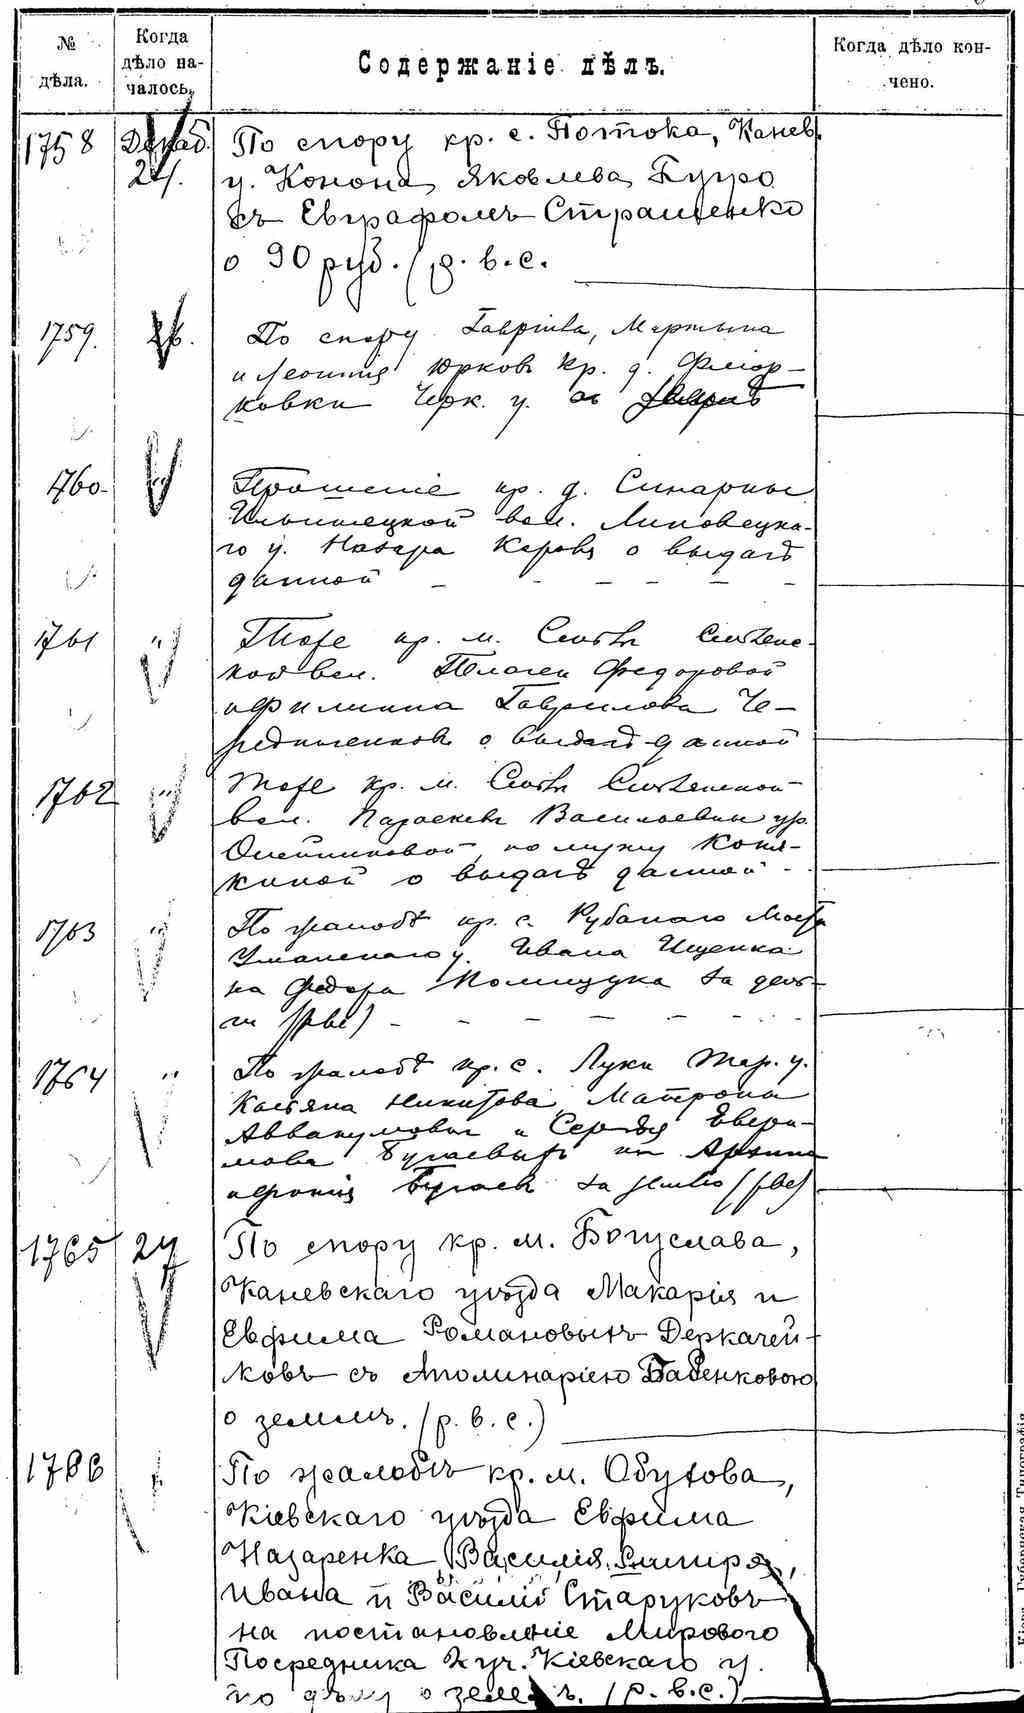 № дѣла.
Когда дѣло началось.
Содержаніе дѣлъ.
Когда дѣло кончено.
1758 Декаб. 24. По спору кр. с. Потока, Канев.
у. Конона Яковлева Бугро
съ Евграфомъ Страшенко
о 90 руб. (р. в. с.
1759. 26. По спору Гавріила, Мартына
и Леонтія Юрковъ кр. д. Фліор-
ковки Черк. у.
1760 " Прошеніе кр. д. Синарны
вол. Липовецка-
го у. Назара о выдачѣ
данной
1761 " Тоже кр. м.
вол. Федоровой
Гаврилова Че-
о выдачѣ данной
1762 " Тоже кр. м.
вол. Параскевы Васильевны ур.
Олейниковой по мужу Коня-
киной о выдачѣ данной
1763 " По жалобѣ кр. с. Рубанаго Моста
Уманскаго у. Ивана Ищенка
на Федора Полищука за день-
ги (рвс)
1764 " По жалобѣ кр. с. Луки Тар. у.
Касьяна Никитова, Матрона
Аввакумовы и Сергѣя
на
за землю (рвс)
1765 27 По спору кр. м. Богуслава,
Каневскаго уѣзда Макарія и
Евфима Романовыхъ Деркачен-
ковъ съ Аполинаріею Бабенковою
о землѣ. (р. в. с.)
1766 " По жалобѣ кр. м. Обухова,
Кіевскаго уѣзда Евфима
Назаренка, Василія,
Ивана и Василія Старуковъ
на постановленіе Мирового
Посредника 2 уч. Кіевскаго у.
по дѣлу о землѣ. (р. в. с.)
Губернская Типографія